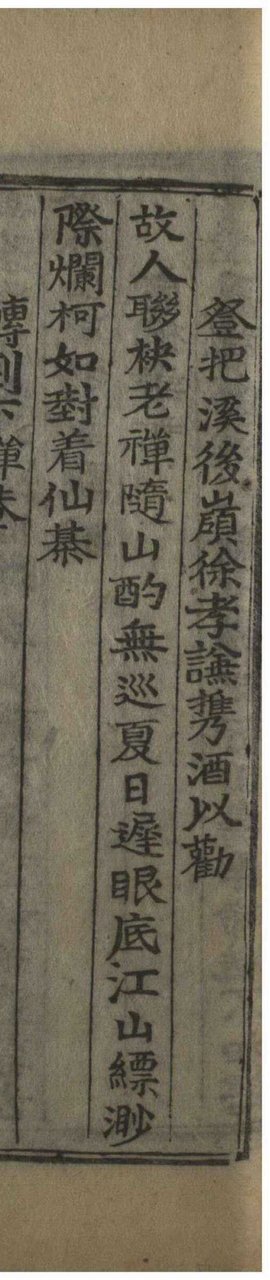 登把溪後嶺徐孝謙携酒以勸
故人聯袂老禪隨山酌無巡夏日遲眼底江山縹渺
際爛柯如對着仙棊